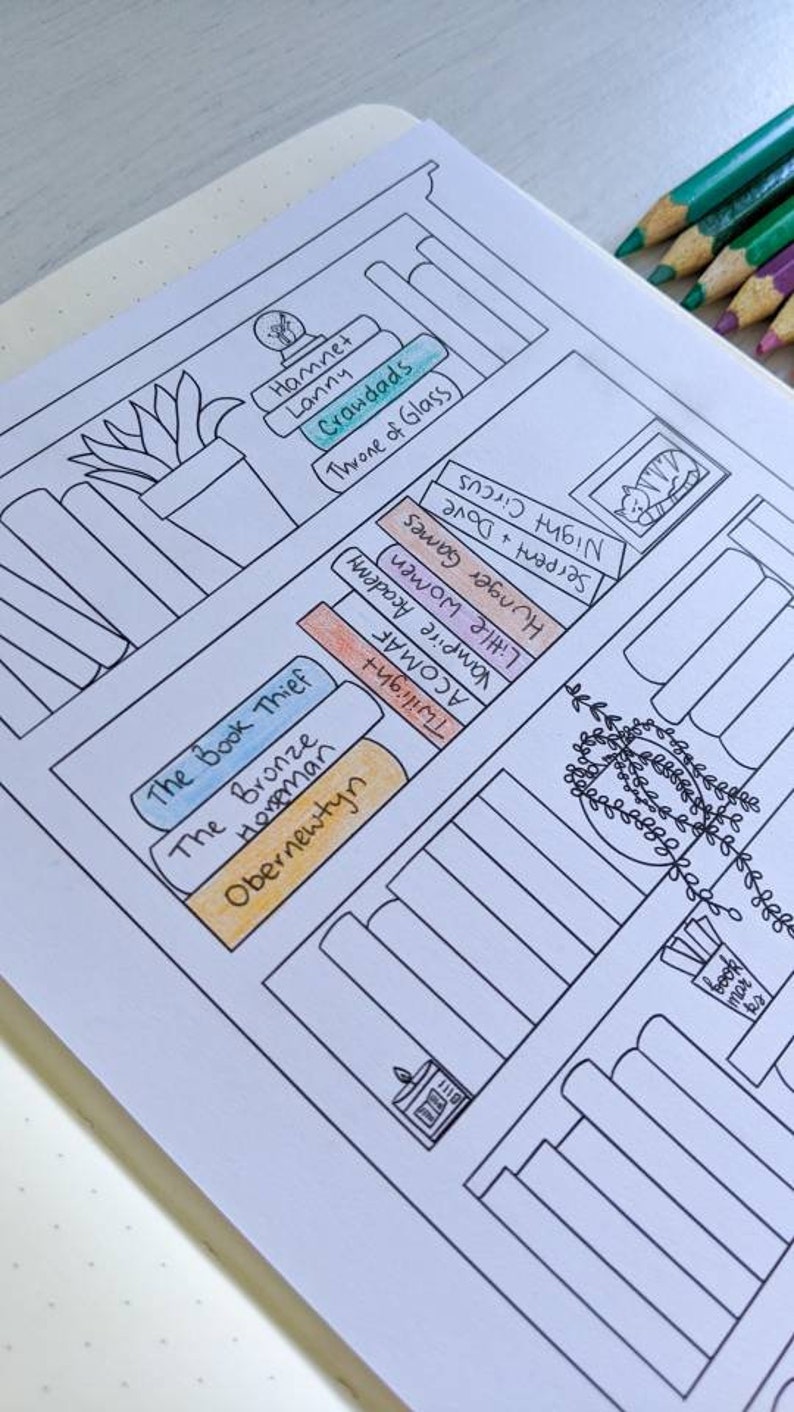 Hamnet
Lanny
Crawdads
Throne of Glass
The Book Thief
The Bronze
Horseman
Obernewtyn
Twilight
ACOMAF
Vampire Academy
Little Women
Hunger Games
Serpent + Dove
Night Circus
book
mar
ks